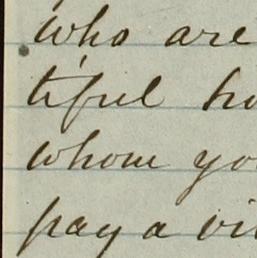 who are
tiful
whom yo
pay a vi